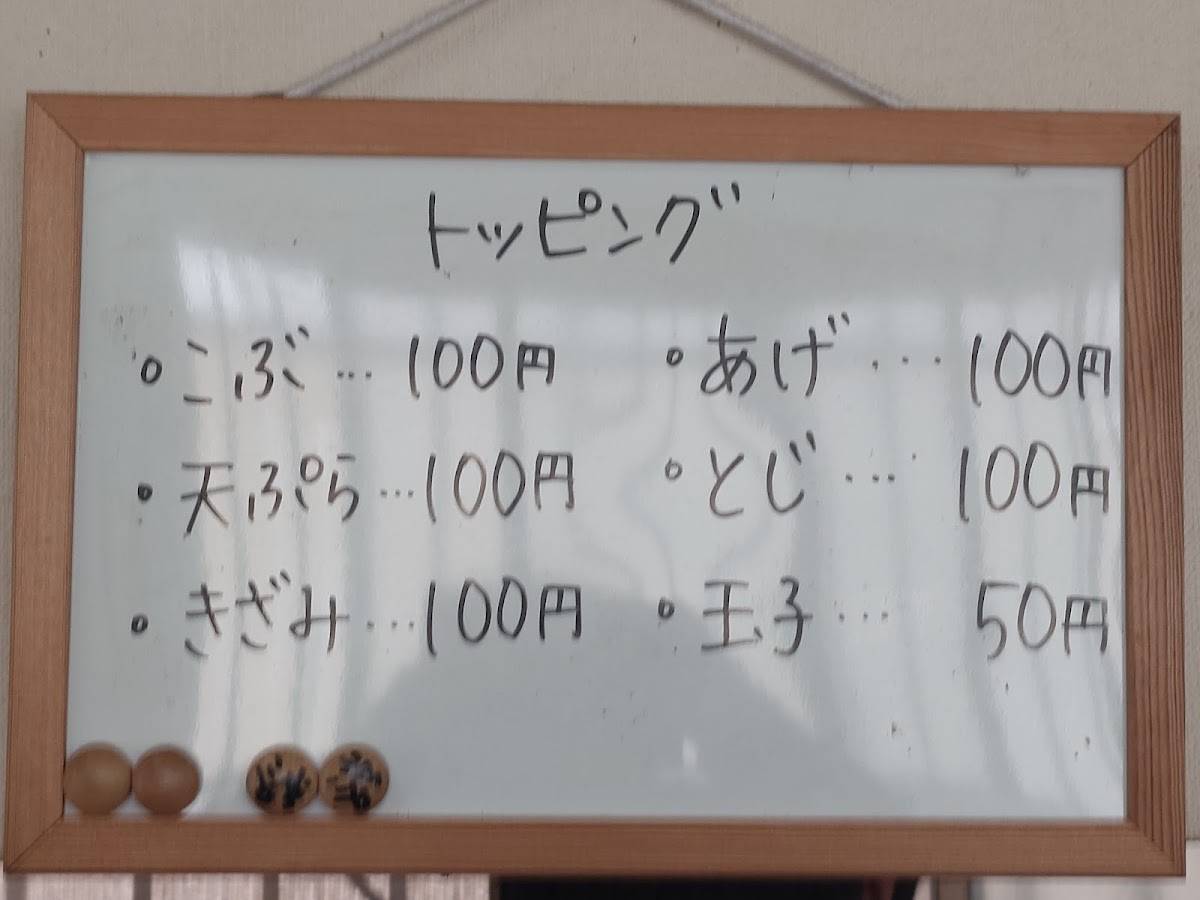 トッピング
・こぶ…100円
・天ぷら…100円
・きざみ…100円
・あげ…100円
・とじ…100円
・玉子…50円